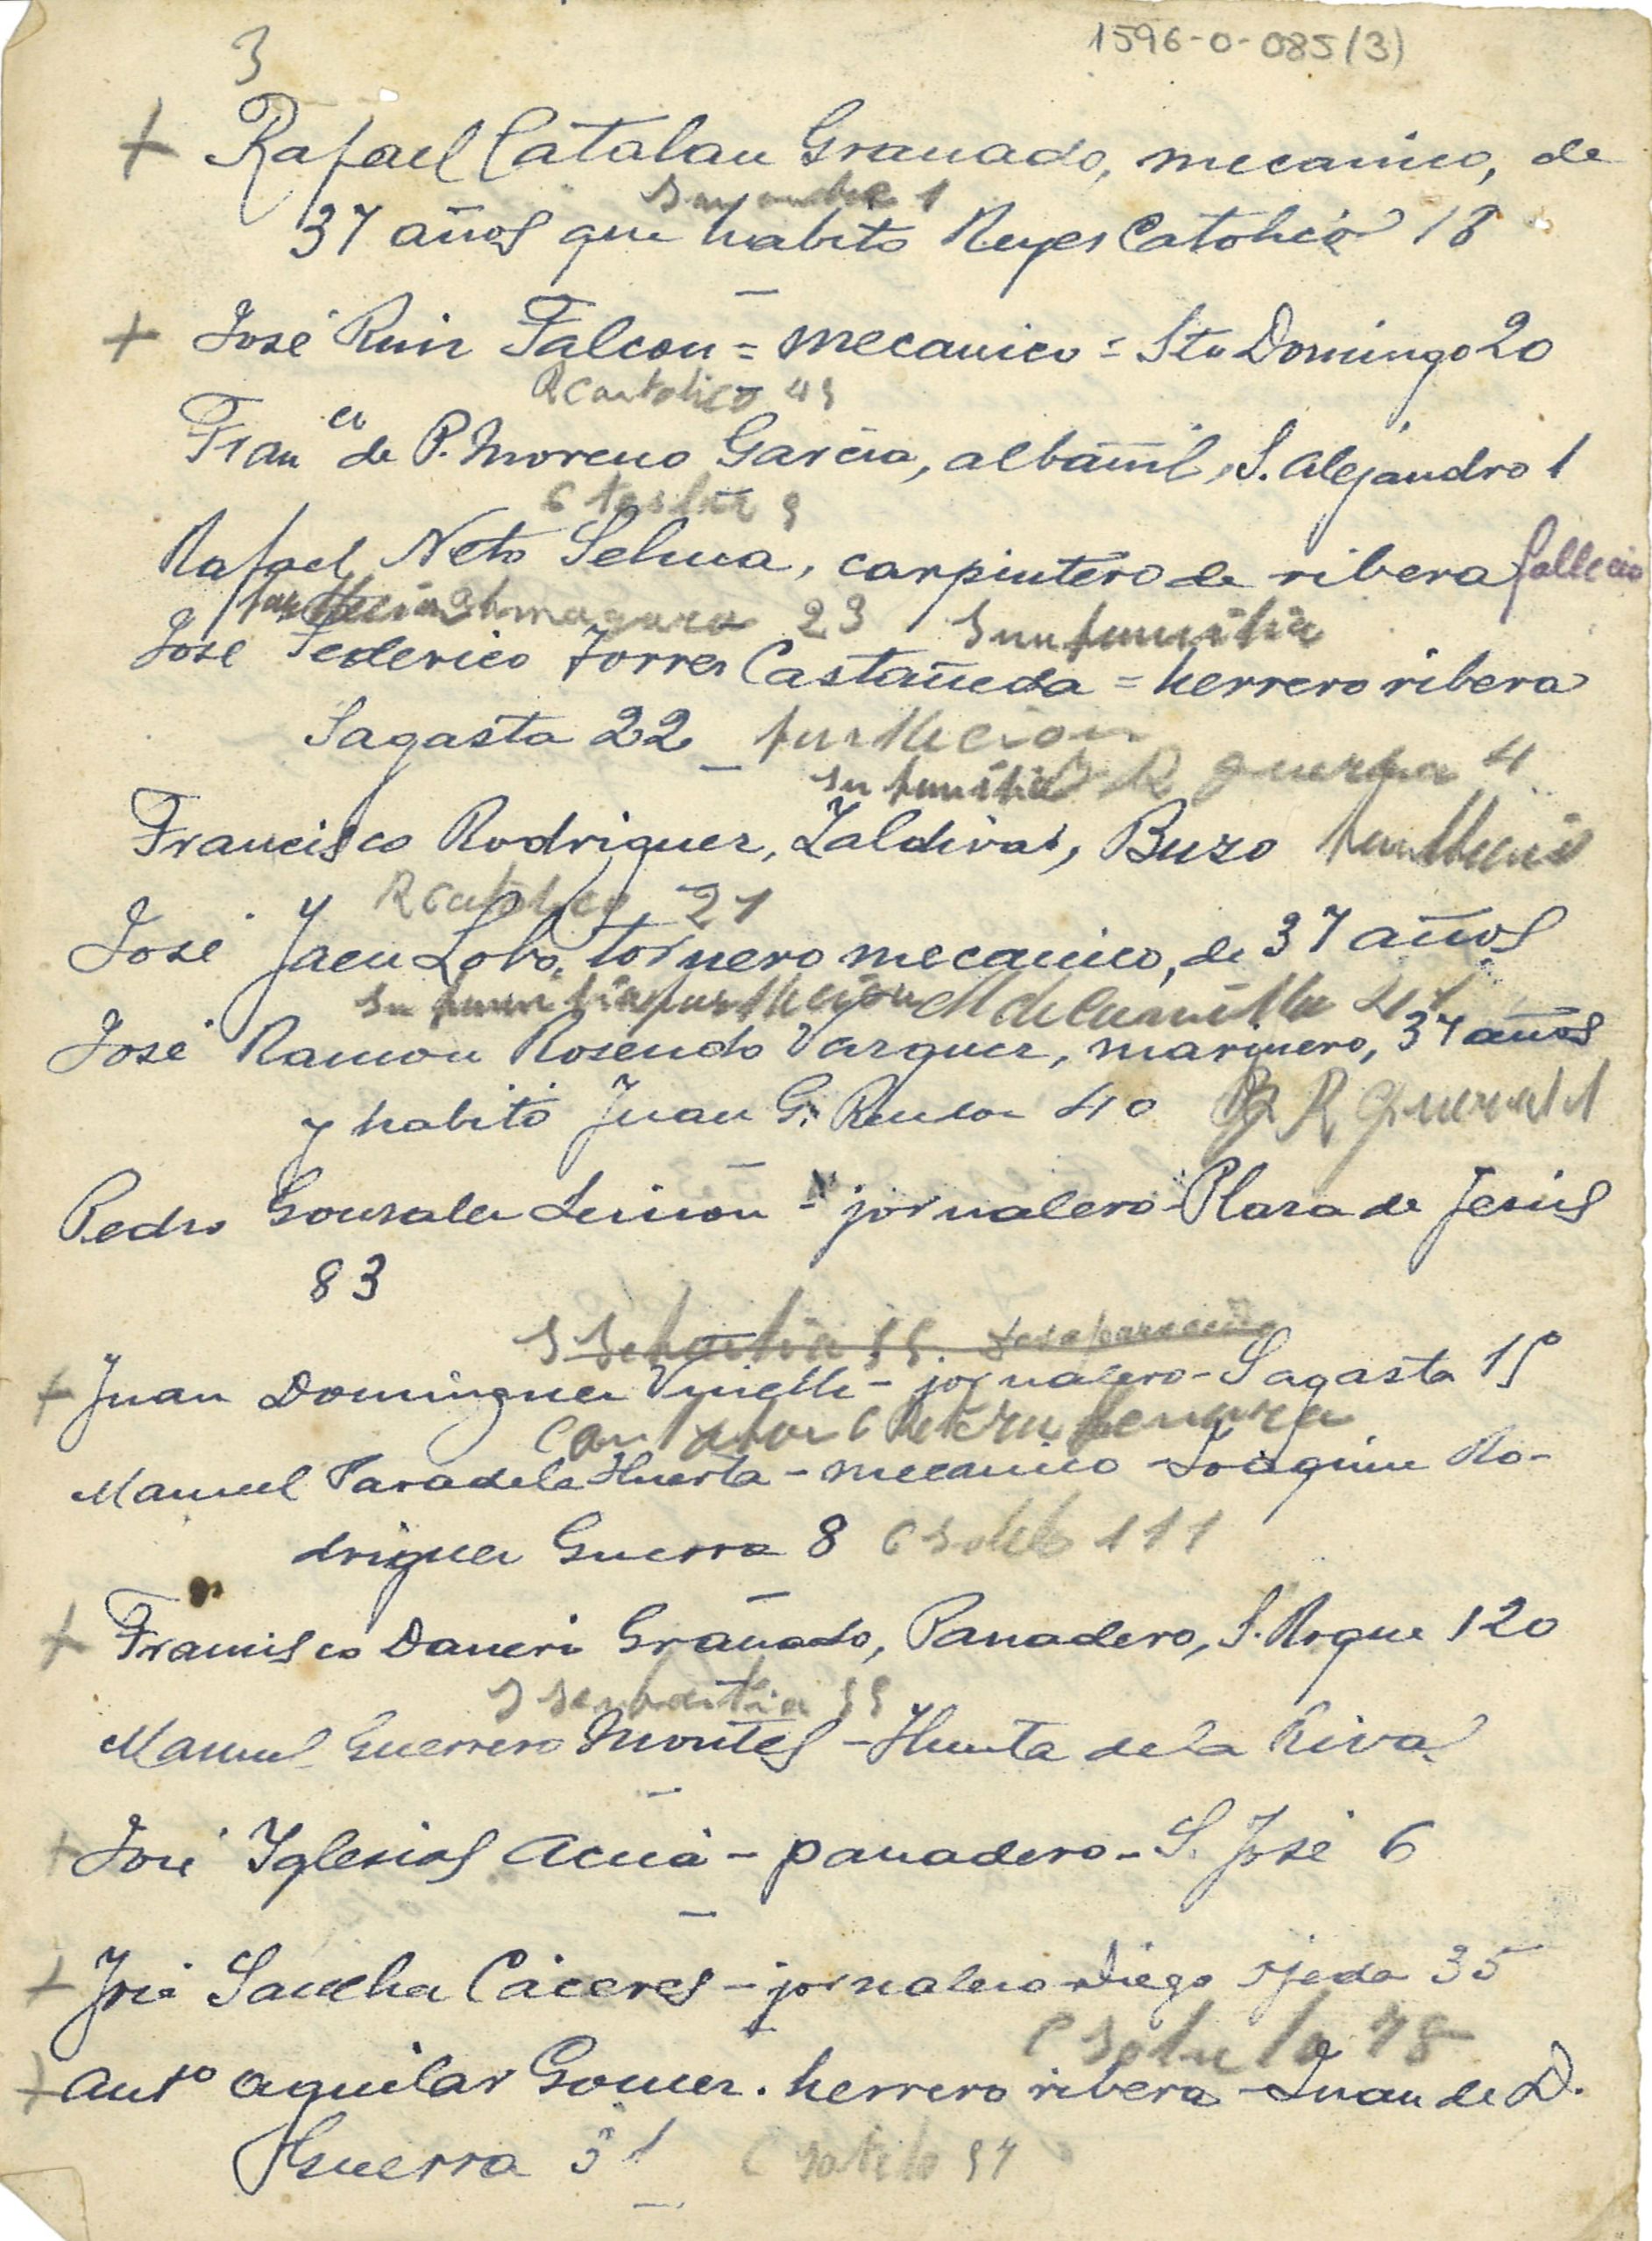 3
1596-0-085(3)
+ Rafael Catalan Granado, mecanico, de
1
37 años que habito Reyes Catolico 18
+ José Ruiz Falcon = mecanico = Sto Domingo 20
R Catolico 43
Fran co de P. Moreno Garcia, albañil, S. Alejandro 1
9
Rafael Neto Selma, carpintero de ribera fallecio
23 su familia
José Federico Torres Castañeda = herrero ribera
Sagasta 22
su familia R guerra 4
Francisco Rodriguez, Zaldivar, Buzo
R catolico 21
José Jaen Lobo, tornero mecanico, de 37 años
su familia
José Ramon Rosendo Vazquez, marinero, 37 años
y habitó Juan G. Rendon 40
Pedro Gonzalez Limon - jornalero - Plaza de Jesús
83
desaparecido
+ Juan Dominguez - jornalero - Sagasta 15
Manuel Paradela Huerta - mecanico - Joaquin Ro-
driguez Guerra 8 C 111
+ Francisco Daneri Granado, Panadero, S. Roque 120
Manuel Guerrero Montes - Huerta de la Riva
+ José Iglesias Acuña - panadero - S. José 6
+ José Sanchez Cáceres - jornalero - Diego ojeda 35
C 78
+ Antº Aguilar Gomez. herrero ribera - Juan de D.
Guerra 31 C